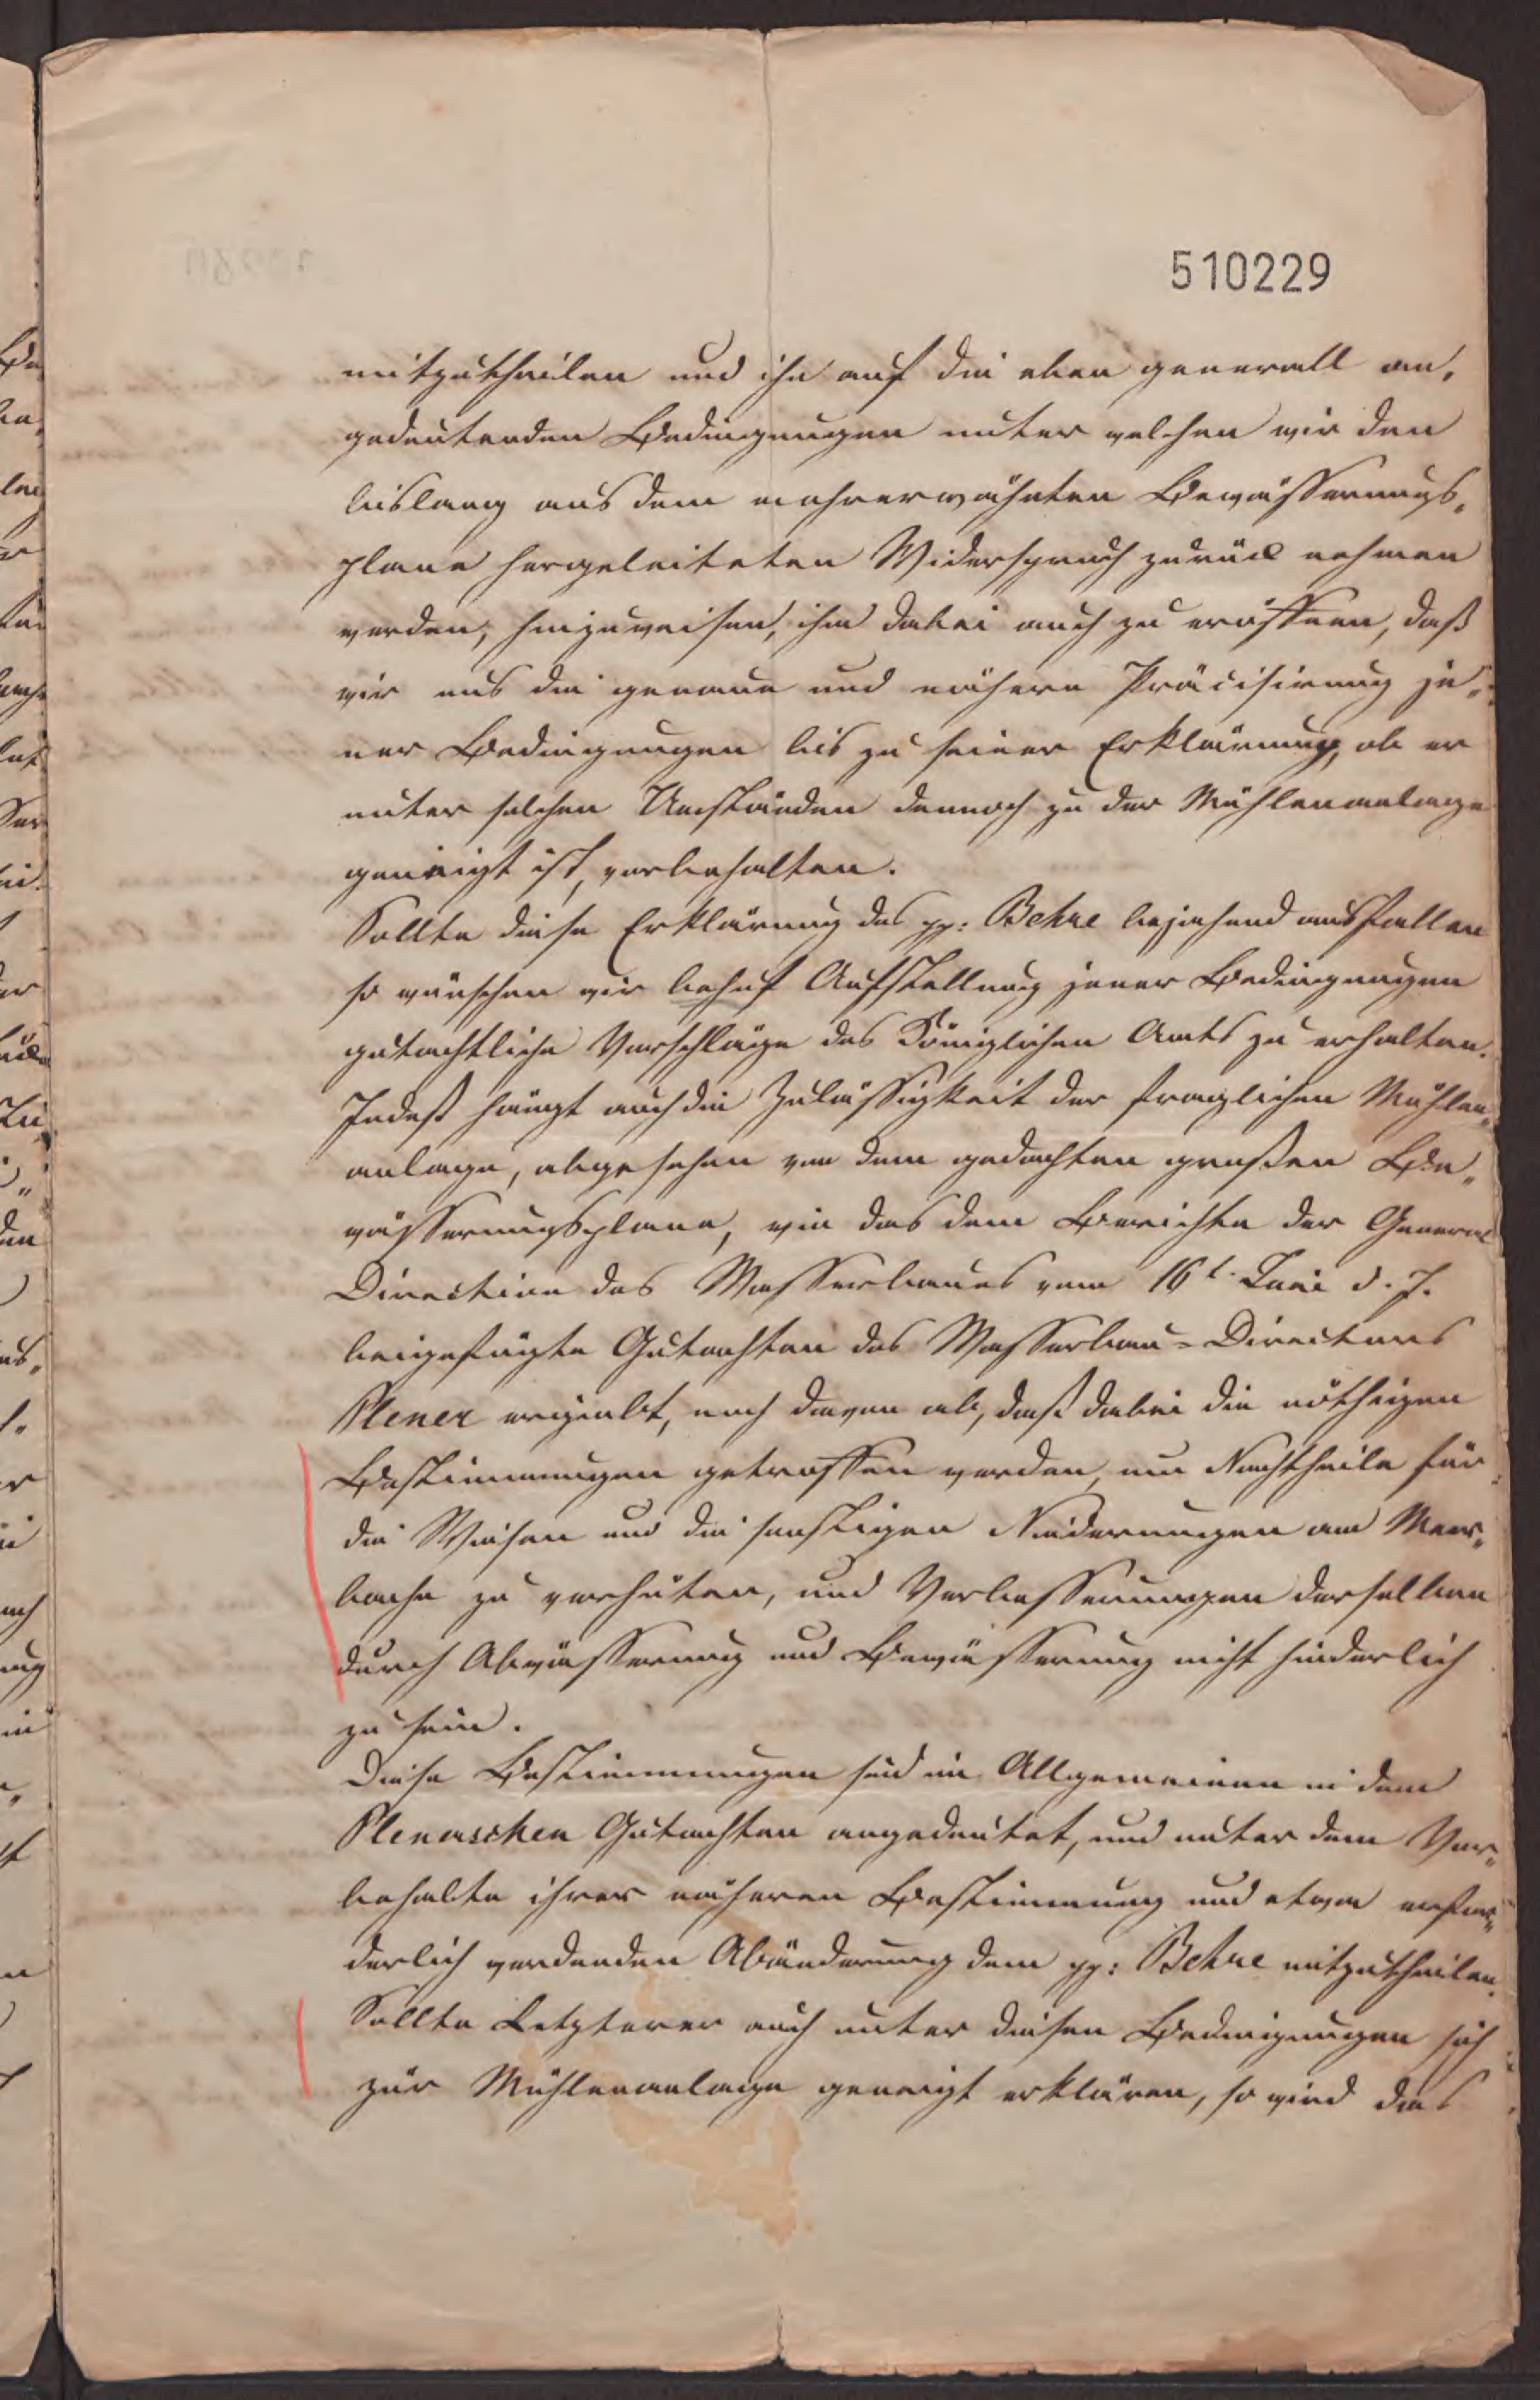 510229
mitzutheilen und ihn auf die oben generell an„
gedeuteden Bedingungen unter welchen wir den
bislang aus dem mehrerwähnten Bewässerungs„
plane hergeleiteten Widerspruch zurück nehmen
werden, hinzuweisen, ihm dabei auch zu eröffnen, daß
wir uns die genaue und nähere Präcisirung je„
ner Bedingungen bis zu seiner Erklärung, ob er
unter solchen Umständen dennoch zu der Mühlenanlage
geneigt ist, vorbehalten.
Sollte diese Erklärung des pp: Behre bejahend ausfallen
so wünschen wir behuf Aufstellung jener Bedingungen
gutachtliche Vorschläge des Königlichen Amts zu erhalten.
Indeß hängt auch die Zulässigkeit der fraglichen Mühlen„
anlage, abgesehen von dem gedachten großen Be„
wässerungsplane, wie das dem Berichte der General
Direction des Wasserbaues vom 16t. Juni d. J.
beigefügte Gutachten des Wasserbau-Directors
Plener ergiebt, noch davon ab, daß dabei die nöthigen
Bestimmungen getroffen werden, um Nachtheile für
die Wiesen und die sonstigen Niederungen am Meer„
bache zu verhüten, und Verbesserungen derselben
durch Abwässerung und Bewässerung nicht hinderlich
zu sein.
Diese Bestimmungen sind im Allgemeinen in dem
Plenerschen Gutachten angedeutet, und unter dem Vor„
behalte ihrer näheren Bestimmung und etwa erfor„
derlich werdenden Abänderung dem pp: Behre mitzutheilen.
Sollte Letzterer auch unter diesen Bedingungen sich
zur Mühlenanlage geneigt erklären, so wird das